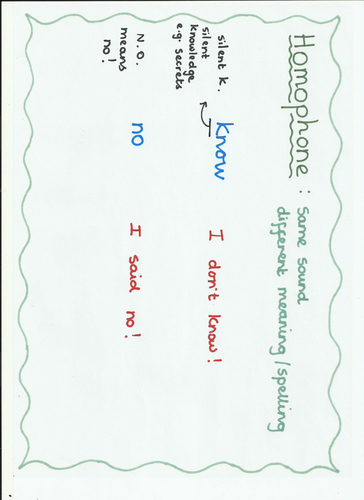 Homophone : Same sound
different meaning/spelling
silent k.
silent
knowledge
e.g. secrets
know
I don't know!
N.O.
means
no!
no
I said no!